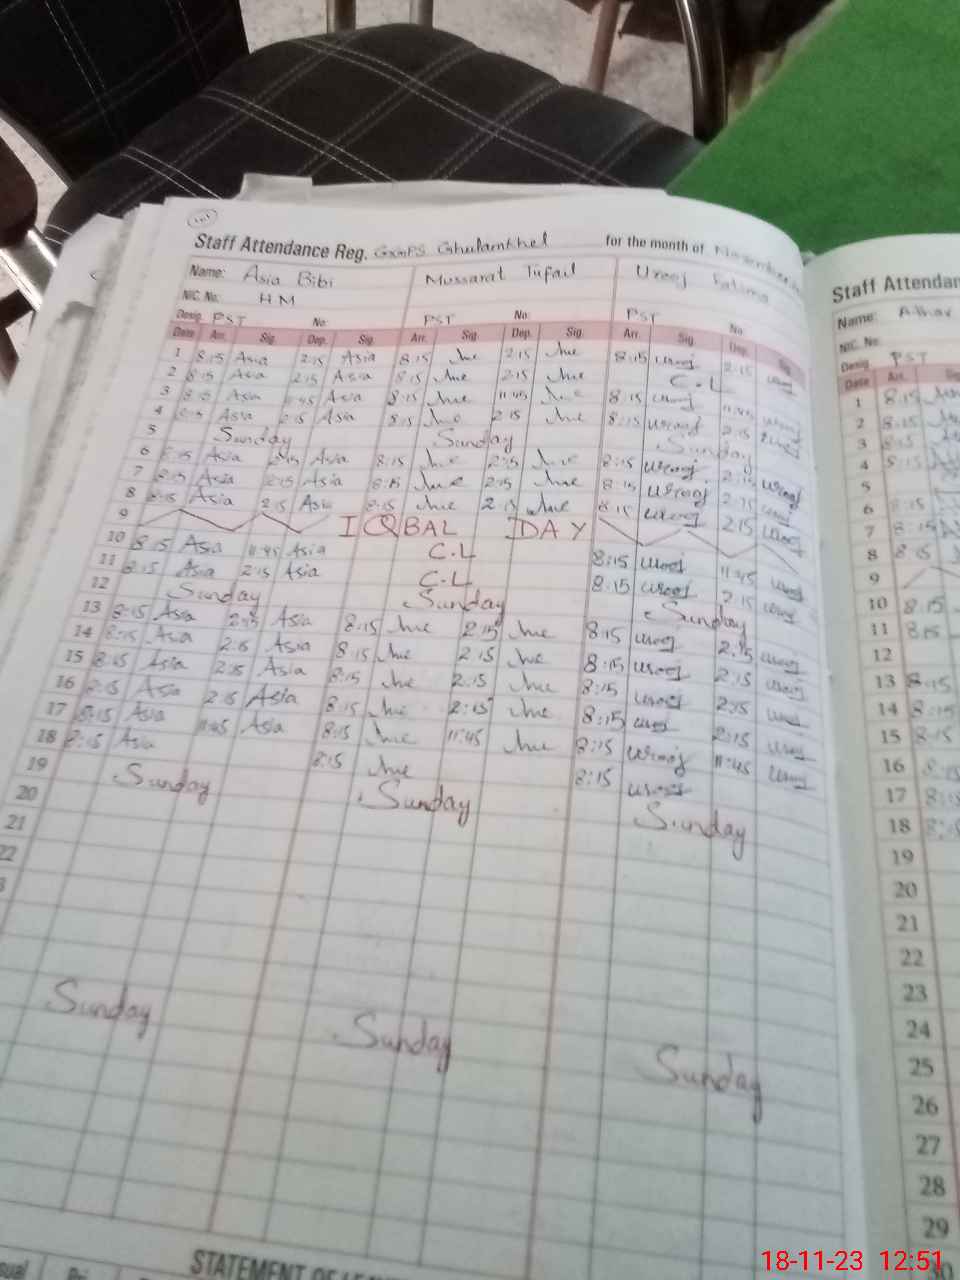 Staff Attendance Reg. GGMPS Ghulamkhel for the month of November
Name: Asia Bibi Mussarat Tufail Urooj Fatima
NIC. No. HM
Desig. PST No: PST No: PST No:
Date Arr. Sig. Dep. Sig. Arr. Sig. Dep. Sig. Arr. Sig. Dep. Sig.
1 8:15 Asia 2:15 Asia 8:15 2:15 8:15 Urooj 2:15 Urooj
2 8:15 Asia 2:15 Asia 8:15 2:15 C.L
3 8:15 Asia 11:45 Asia 8:15 11:45 8:15 Urooj 11:45 Urooj
4 8:15 Asia 2:15 Asia 8:15 2:15 8:15 Urooj 2:15 Urooj
5 Sunday Sunday Sunday
6 8:15 Asia 2:15 Asia 8:15 2:15 8:15 Urooj 2:15 Urooj
7 8:15 Asia 2:15 Asia 8:15 2:15 8:15 Urooj 2:15 Urooj
8 8:15 Asia 2:15 Asia 8:15 2:15 8:15 Urooj 2:15 Urooj
9 IQBAL DAY
10 8:15 Asia 11:45 Asia C.L 8:15 Urooj 11:45 Urooj
11 8:15 Asia 2:15 Asia C.L 8:15 Urooj 2:15 Urooj
12 Sunday Sunday Sunday
13 8:15 Asia 2:15 Asia 8:15 2:15 8:15 Urooj 2:15 Urooj
14 8:15 Asia 2:15 Asia 8:15 2:15 8:15 Urooj 2:15 Urooj
15 8:15 Asia 2:15 Asia 8:15 2:15 8:15 Urooj 2:15 Urooj
16 8:15 Asia 2:15 Asia 8:15 2:15 8:15 Urooj 2:15 Urooj
17 8:15 Asia 11:45 Asia 8:15 11:45 8:15 Urooj 11:45 Urooj
18 8:15 Asia 8:15 8:15 Urooj
19 Sunday Sunday Sunday
20
21
22
Sunday Sunday Sunday
STATEMENT OF
Staff Attendan
Name:
NIC. No.
Desig. PST
Date Arr.
1 8:15
2 8:15
3 8:15
4 8:15
5
6 8:15
7 8:15
8 8:15
9
10 8:15
11 8:15
12
13 8:15
14 8:15
15 8:15
16 8:15
17 8:15
18 8:15
19
20
21
22
23
24
25
26
27
28
29
18-11-23 12:51